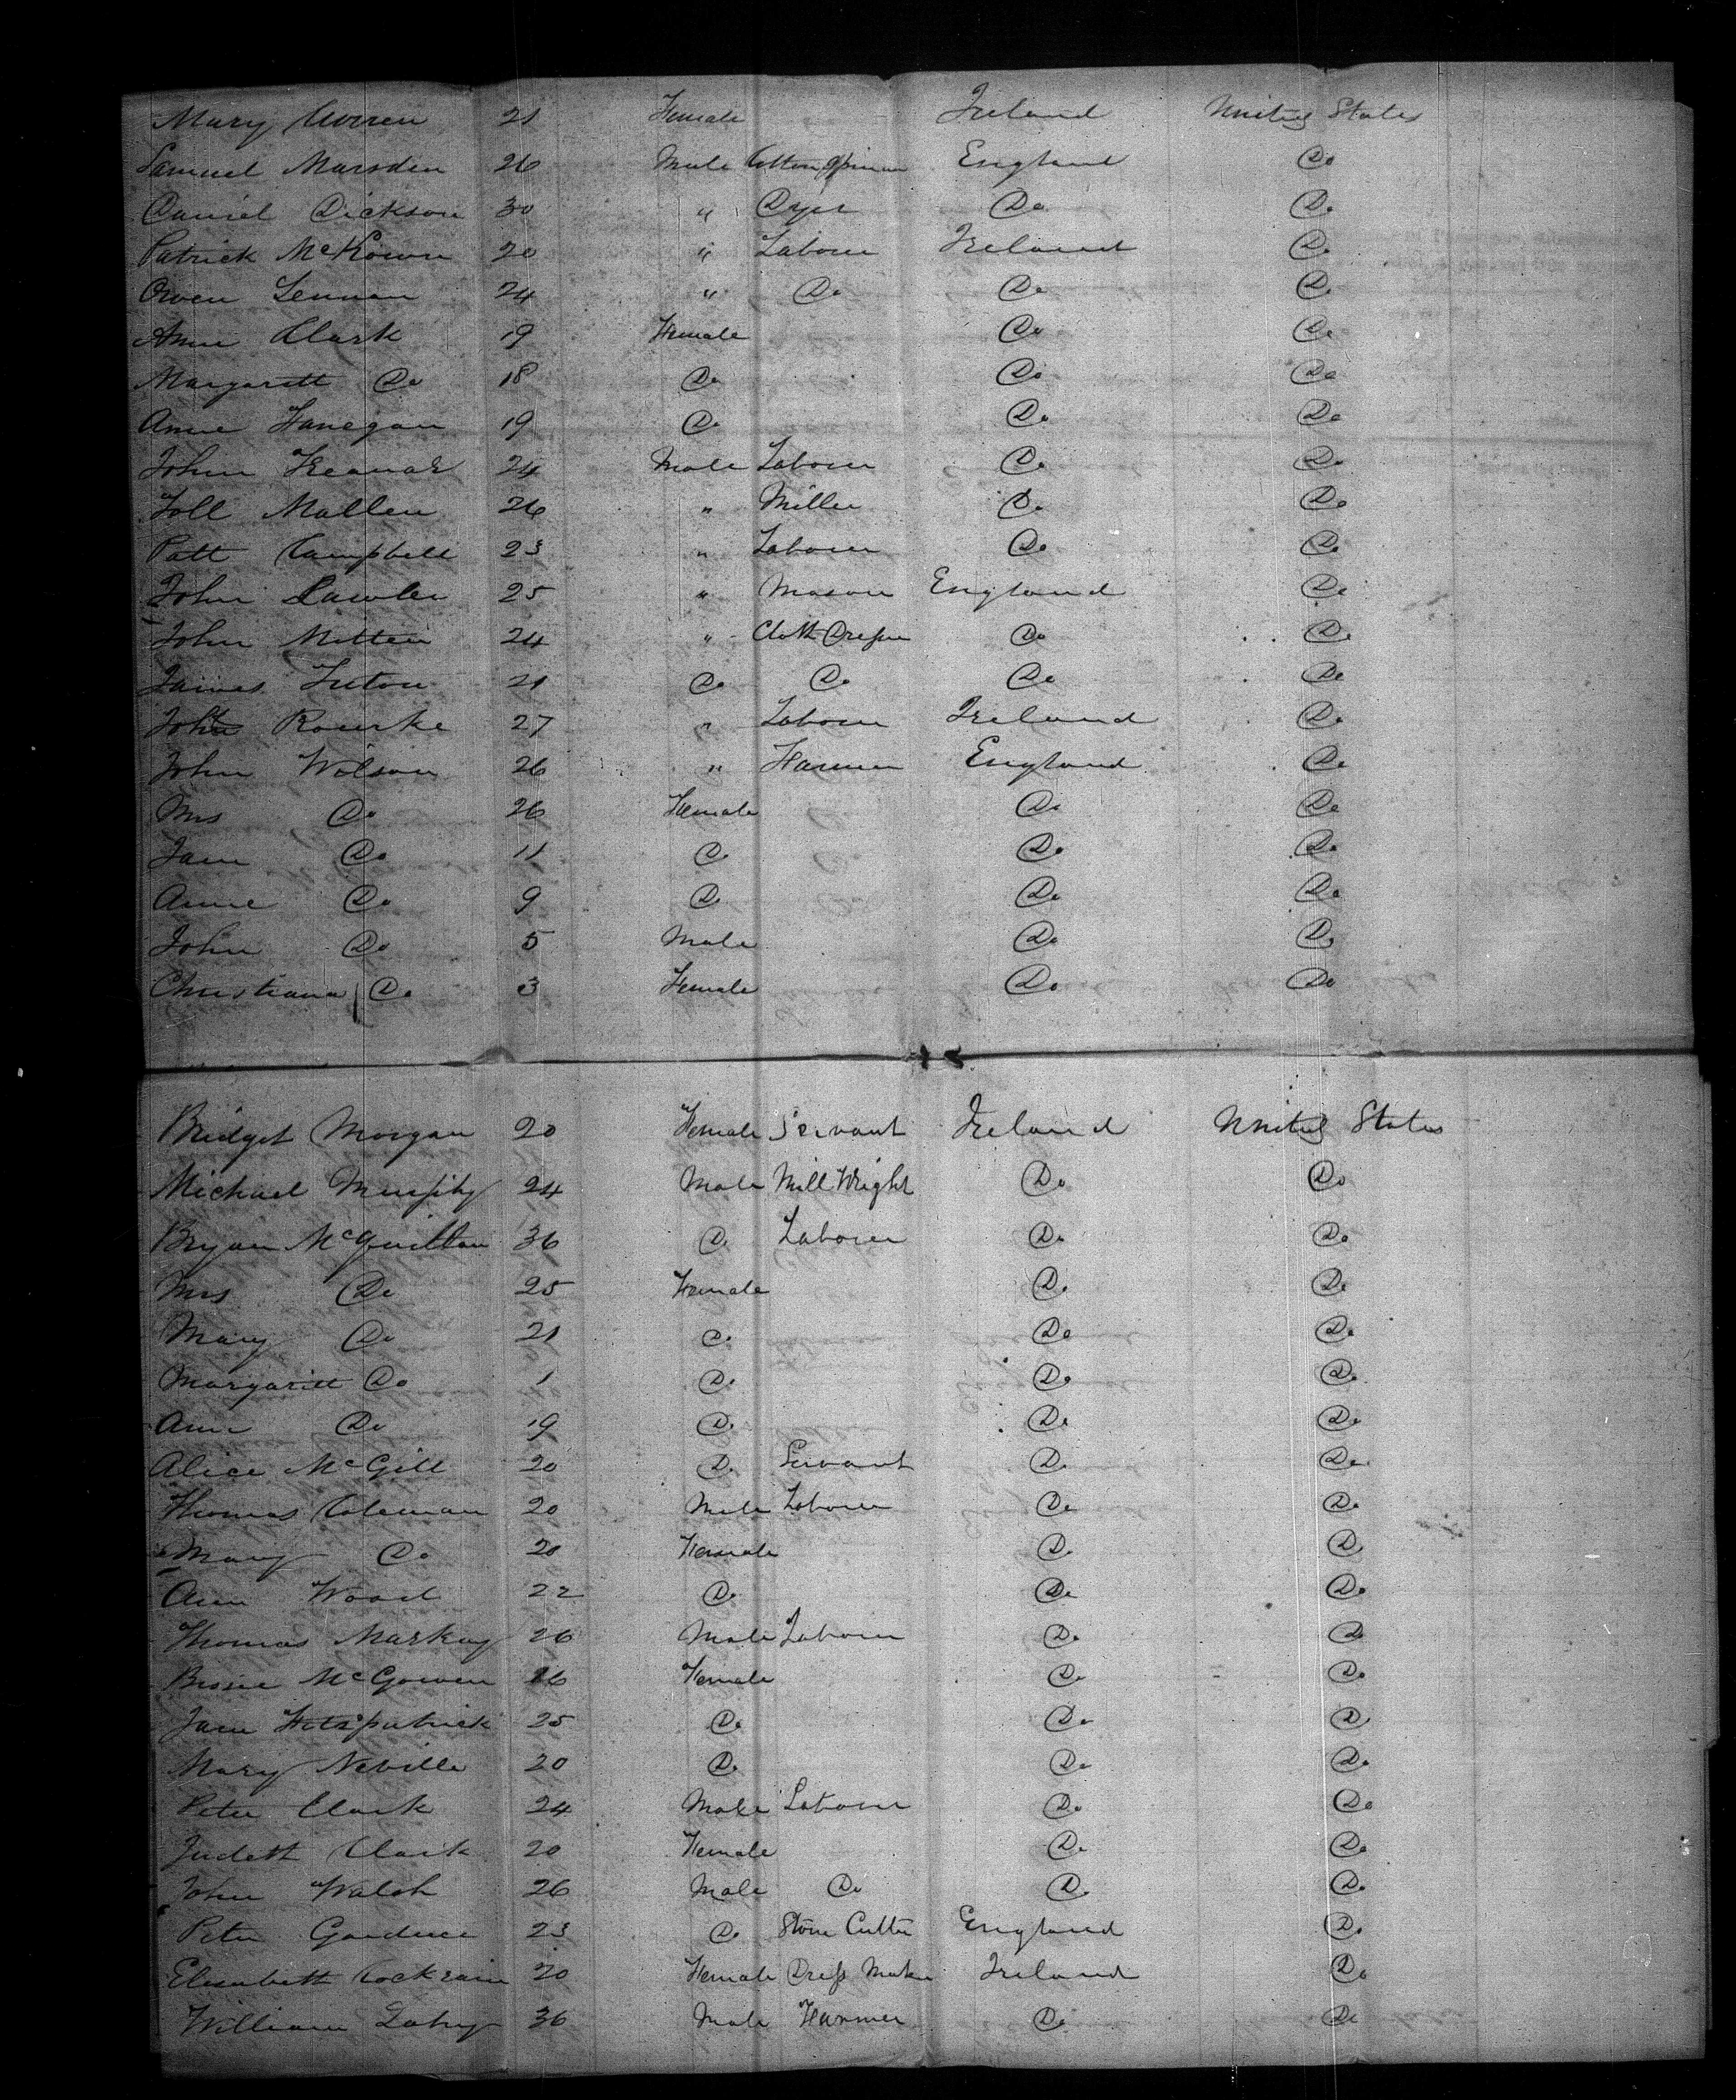 Mary Curren 21 Female Ireland United States
Samuel Marsden 26 Male Cotton Spinner England Do
Daniel Dickson 30 " Dyer Do Do
Patrick McKown 20 " Laborer Ireland Do
Owen Lennan 24 " Do Do Do
Ann Clark 19 Female Do Do
Margarett Do 18 Do Do Do
Anne Fanegan 19 Do Do Do
John 24 Male Laborer Do Do
Mallen 26 " Miller Do Do
Patt Campbell 23 " Laborer Do Do
John Lawler 25 " Mason England Do
John Mitten 24 " Cloth Dresser Do Do
James 21 Do Do Do Do
John Rourke 27 " Laborer Ireland Do
John Wilson 26 " Farmer England Do
Mrs Do 26 Female Do Do
Jane Do 11 Do Do Do
Anne Do 9 Do Do Do
John Do 5 Male Do Do
Christiana Do 3 Female Do Do
Bridget Morgan 20 Female Servant Ireland United States
Michael Murphy 24 Male Mill Wright Do Do
Bryan McQuillan 36 Do Laborer Do Do
Mrs Do 25 Female Do Do
Mary Do 21 Do Do Do
Margaritt Do 1 Do Do Do
Ann Do 19 Do Do Do
Alice McGill 20 Do Servant Do Do
Thomas Coleman 20 Male Laborer Do Do
Mary Do 20 Female Do Do
Ann Wood 22 Do Do Do
Thomas Markey 26 Male Laborer Do Do
McGowen 16 Female Do Do
Jane Fitzpatrick 25 Do Do Do
Mary Neville 20 Do Do Do
Peter Clark 24 Male Laborer Do Do
Judett Clark 20 Female Do Do
John Walsh 26 Male Do Do Do
Peter 23 Do Stone Cutter England Do
Elisabett Cockrain 20 Female Dress Maker Ireland Do
William Lahy 36 Male Farmer Do Do